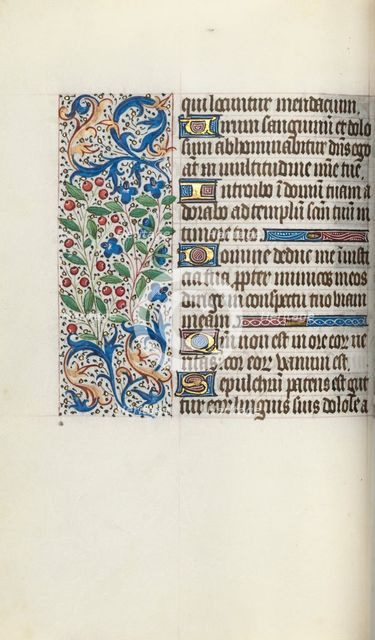 qui locuntur mendacium
Virum sanguinũ et dolo
sum abhominabitur dñs ego
at̃ in multitudine mĩe tue.
Introibo ĩ domũ tuam a
dorabo ad templũ sanctũ tuũ in
timore tuo
Domine deduc me ĩ iusti
cia tua ppter inimicos meos
dirige in conspectu tuo viam
meam
Qm̃ non est in ore eor̃ ue
ritas cor eor̃ vanum est.
Sepulchrũ patens est gut
tur eor̃ linguis suis dolose a